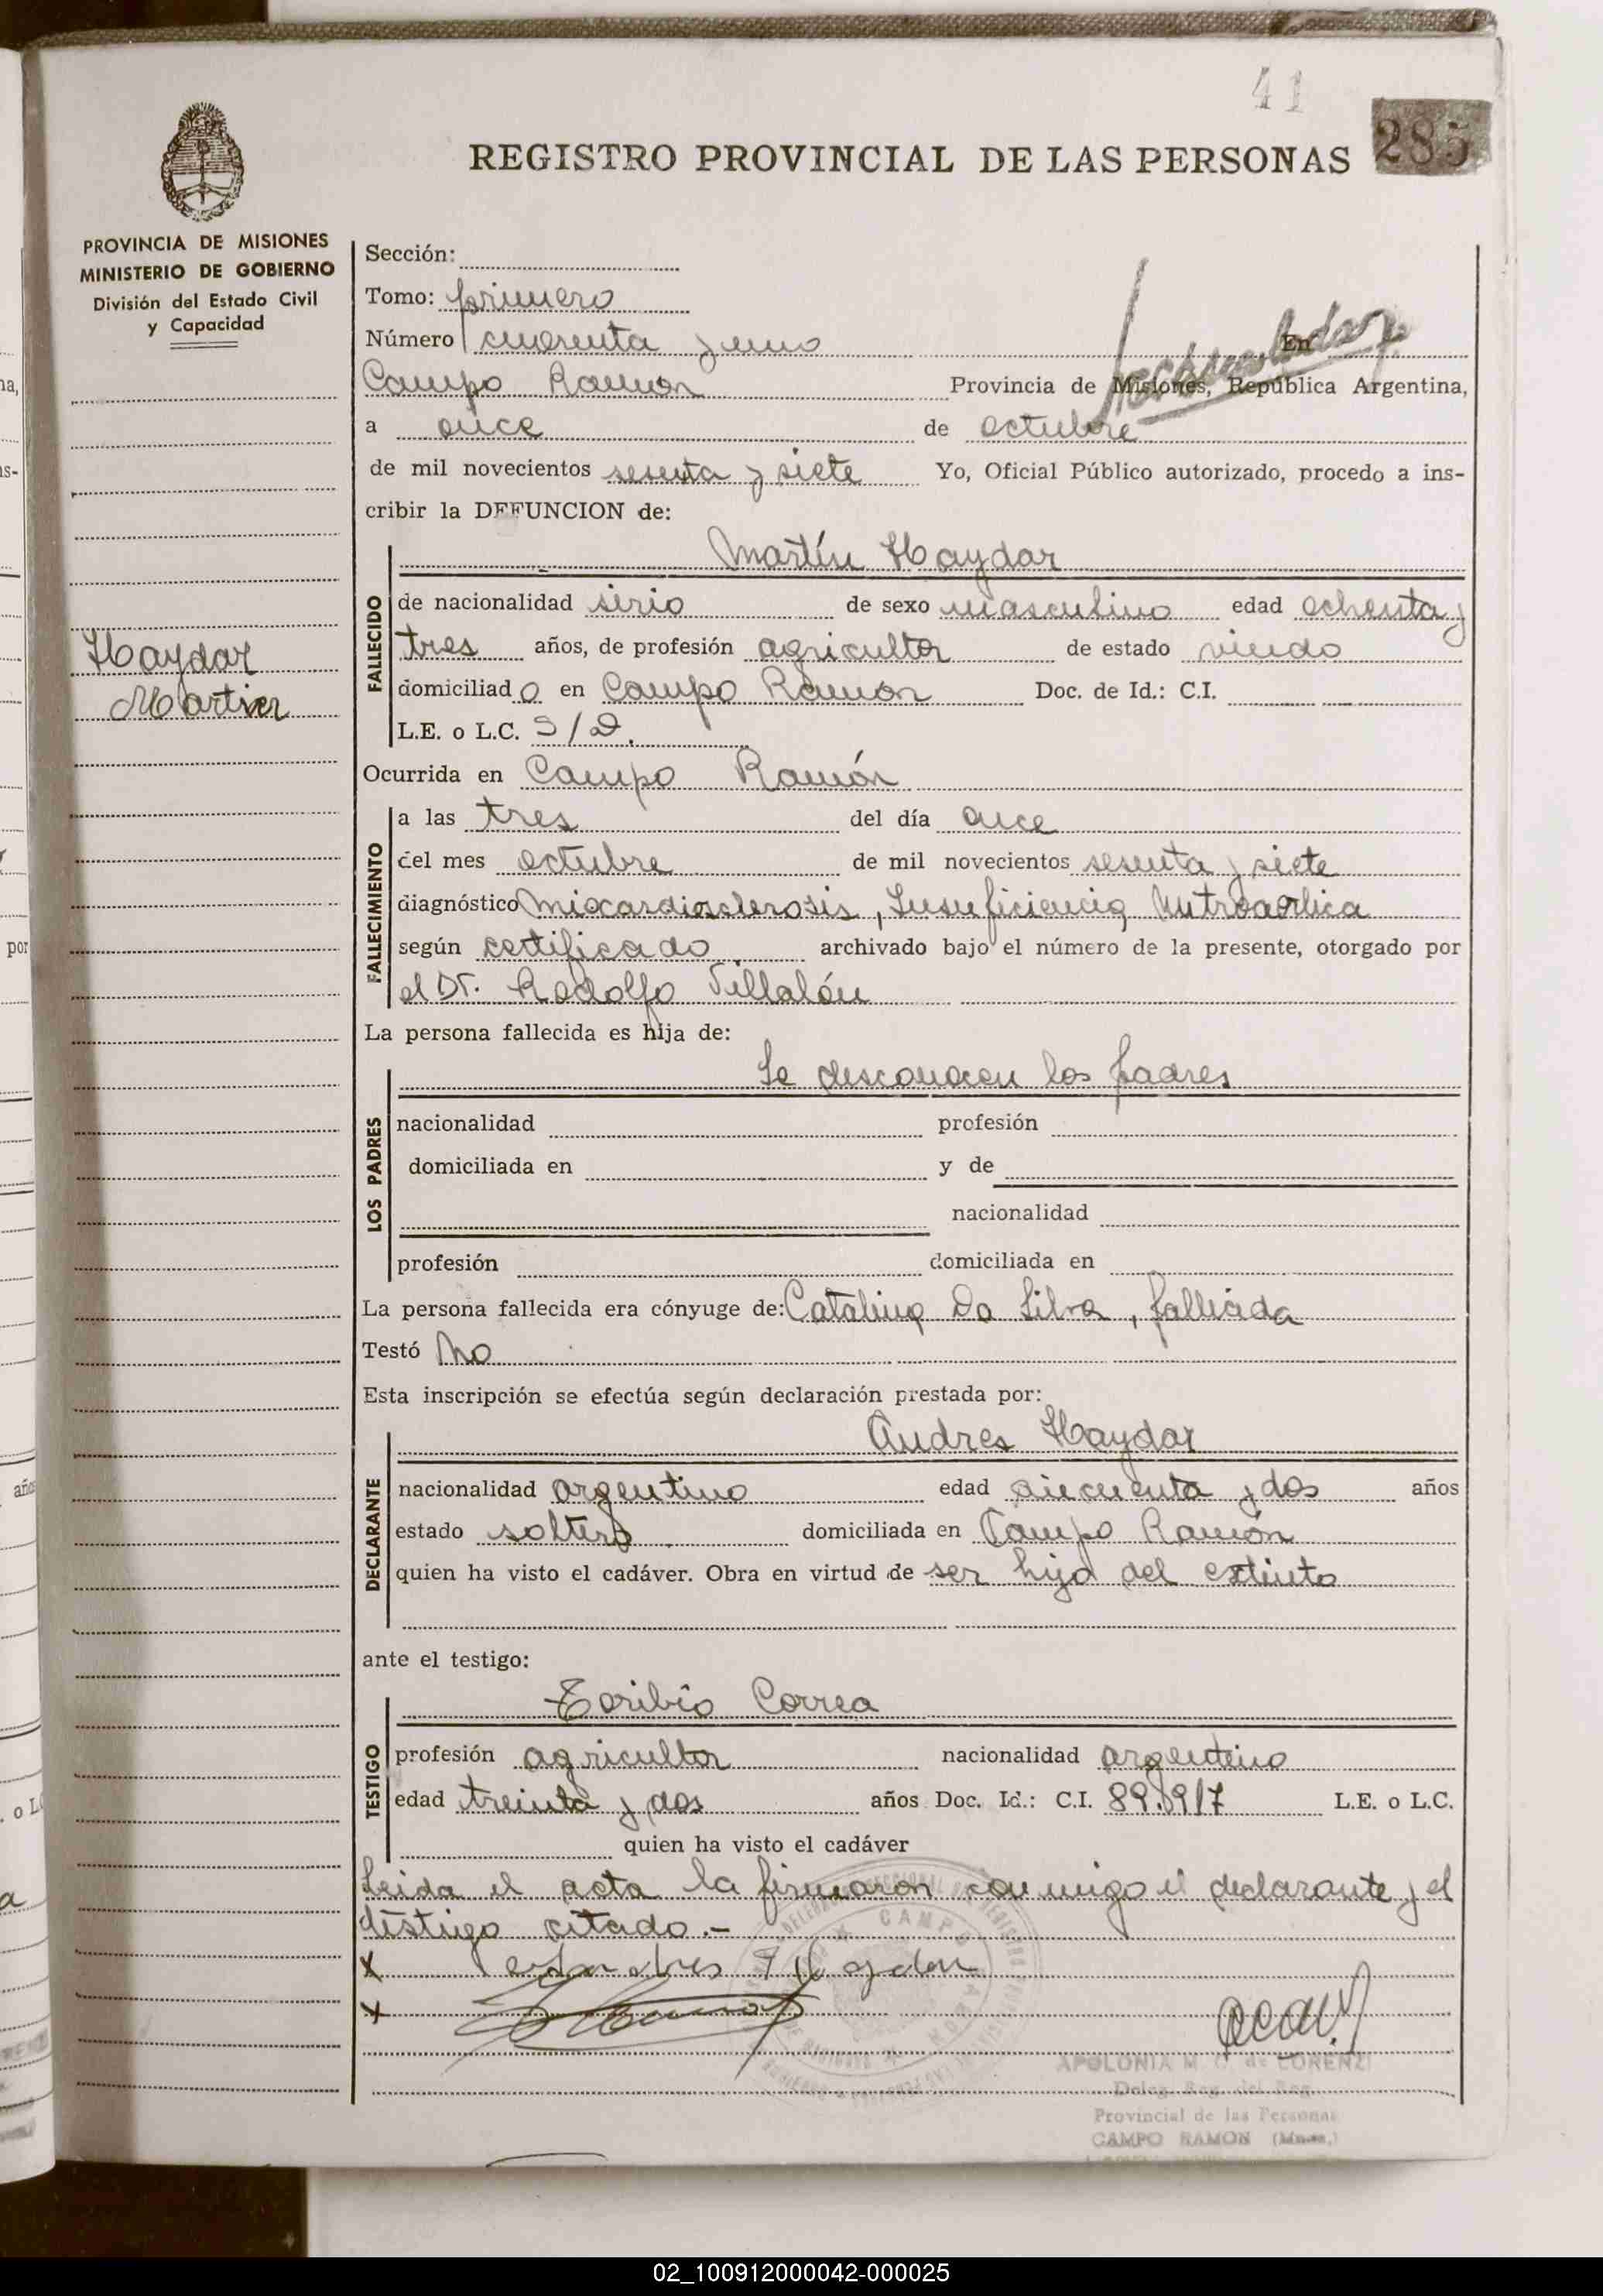 41
285
REGISTRO PROVINCIAL DE LAS PERSONAS
PROVINCIA DE MISIONES
MINISTERIO DE GOBIERNO
División del Estado Civil
y Capacidad
Haydar
Martin
Sección:
Tomo: primero
Número cuarenta y uno En
Campo Ramon Provincia de Misiones, República Argentina,
a once de octubre
de mil novecientos sesenta y siete Yo, Oficial Público autorizado, procedo a ins-
cribir la DEFUNCION de:
Martín Haydar
FALLECIDO
de nacionalidad sirio de sexo masculino edad ochenta y
tres años, de profesión agricultor de estado viudo
domiciliado en Campo Ramón Doc. de Id.: C.I.
L.E. o L.C. S/D.
Ocurrida en Campo Ramón
FALLECIMIENTO
a las tres del día once
del mes octubre de mil novecientos sesenta y siete
diagnóstico miocardiosclerosis, Insuficiencia Mitroaortica
según certificado archivado bajo el número de la presente, otorgado por
el Dr. Rodolfo Villalón
La persona fallecida es hija de:
Se desconocen los padres
LOS PADRES
nacionalidad profesión
domiciliada en y de
nacionalidad
profesión domiciliada en
La persona fallecida era cónyuge de: Catalina Da Silva, fallecida
Testó No
Esta inscripción se efectúa según declaración prestada por:
Andres Haydar
DECLARANTE
nacionalidad argentino edad cincuenta y dos años
estado soltero domiciliada en Campo Ramón
quien ha visto el cadáver. Obra en virtud de ser hijo del extinto
ante el testigo:
Toribio Correa
TESTIGO
profesión agricultor nacionalidad argentino
edad treinta y dos años Doc. Id.: C.I. 89.917 L.E. o L.C.
quien ha visto el cadáver
Leida el acta la firmaron conmigo el declarante y el
testigo citado.-
x
x
APOLONIA M. de LORENZI
Deleg. Reg. del Reg.
Provincial de las Personas
CAMPO RAMON (Mnes.)
02_100912000042-000025